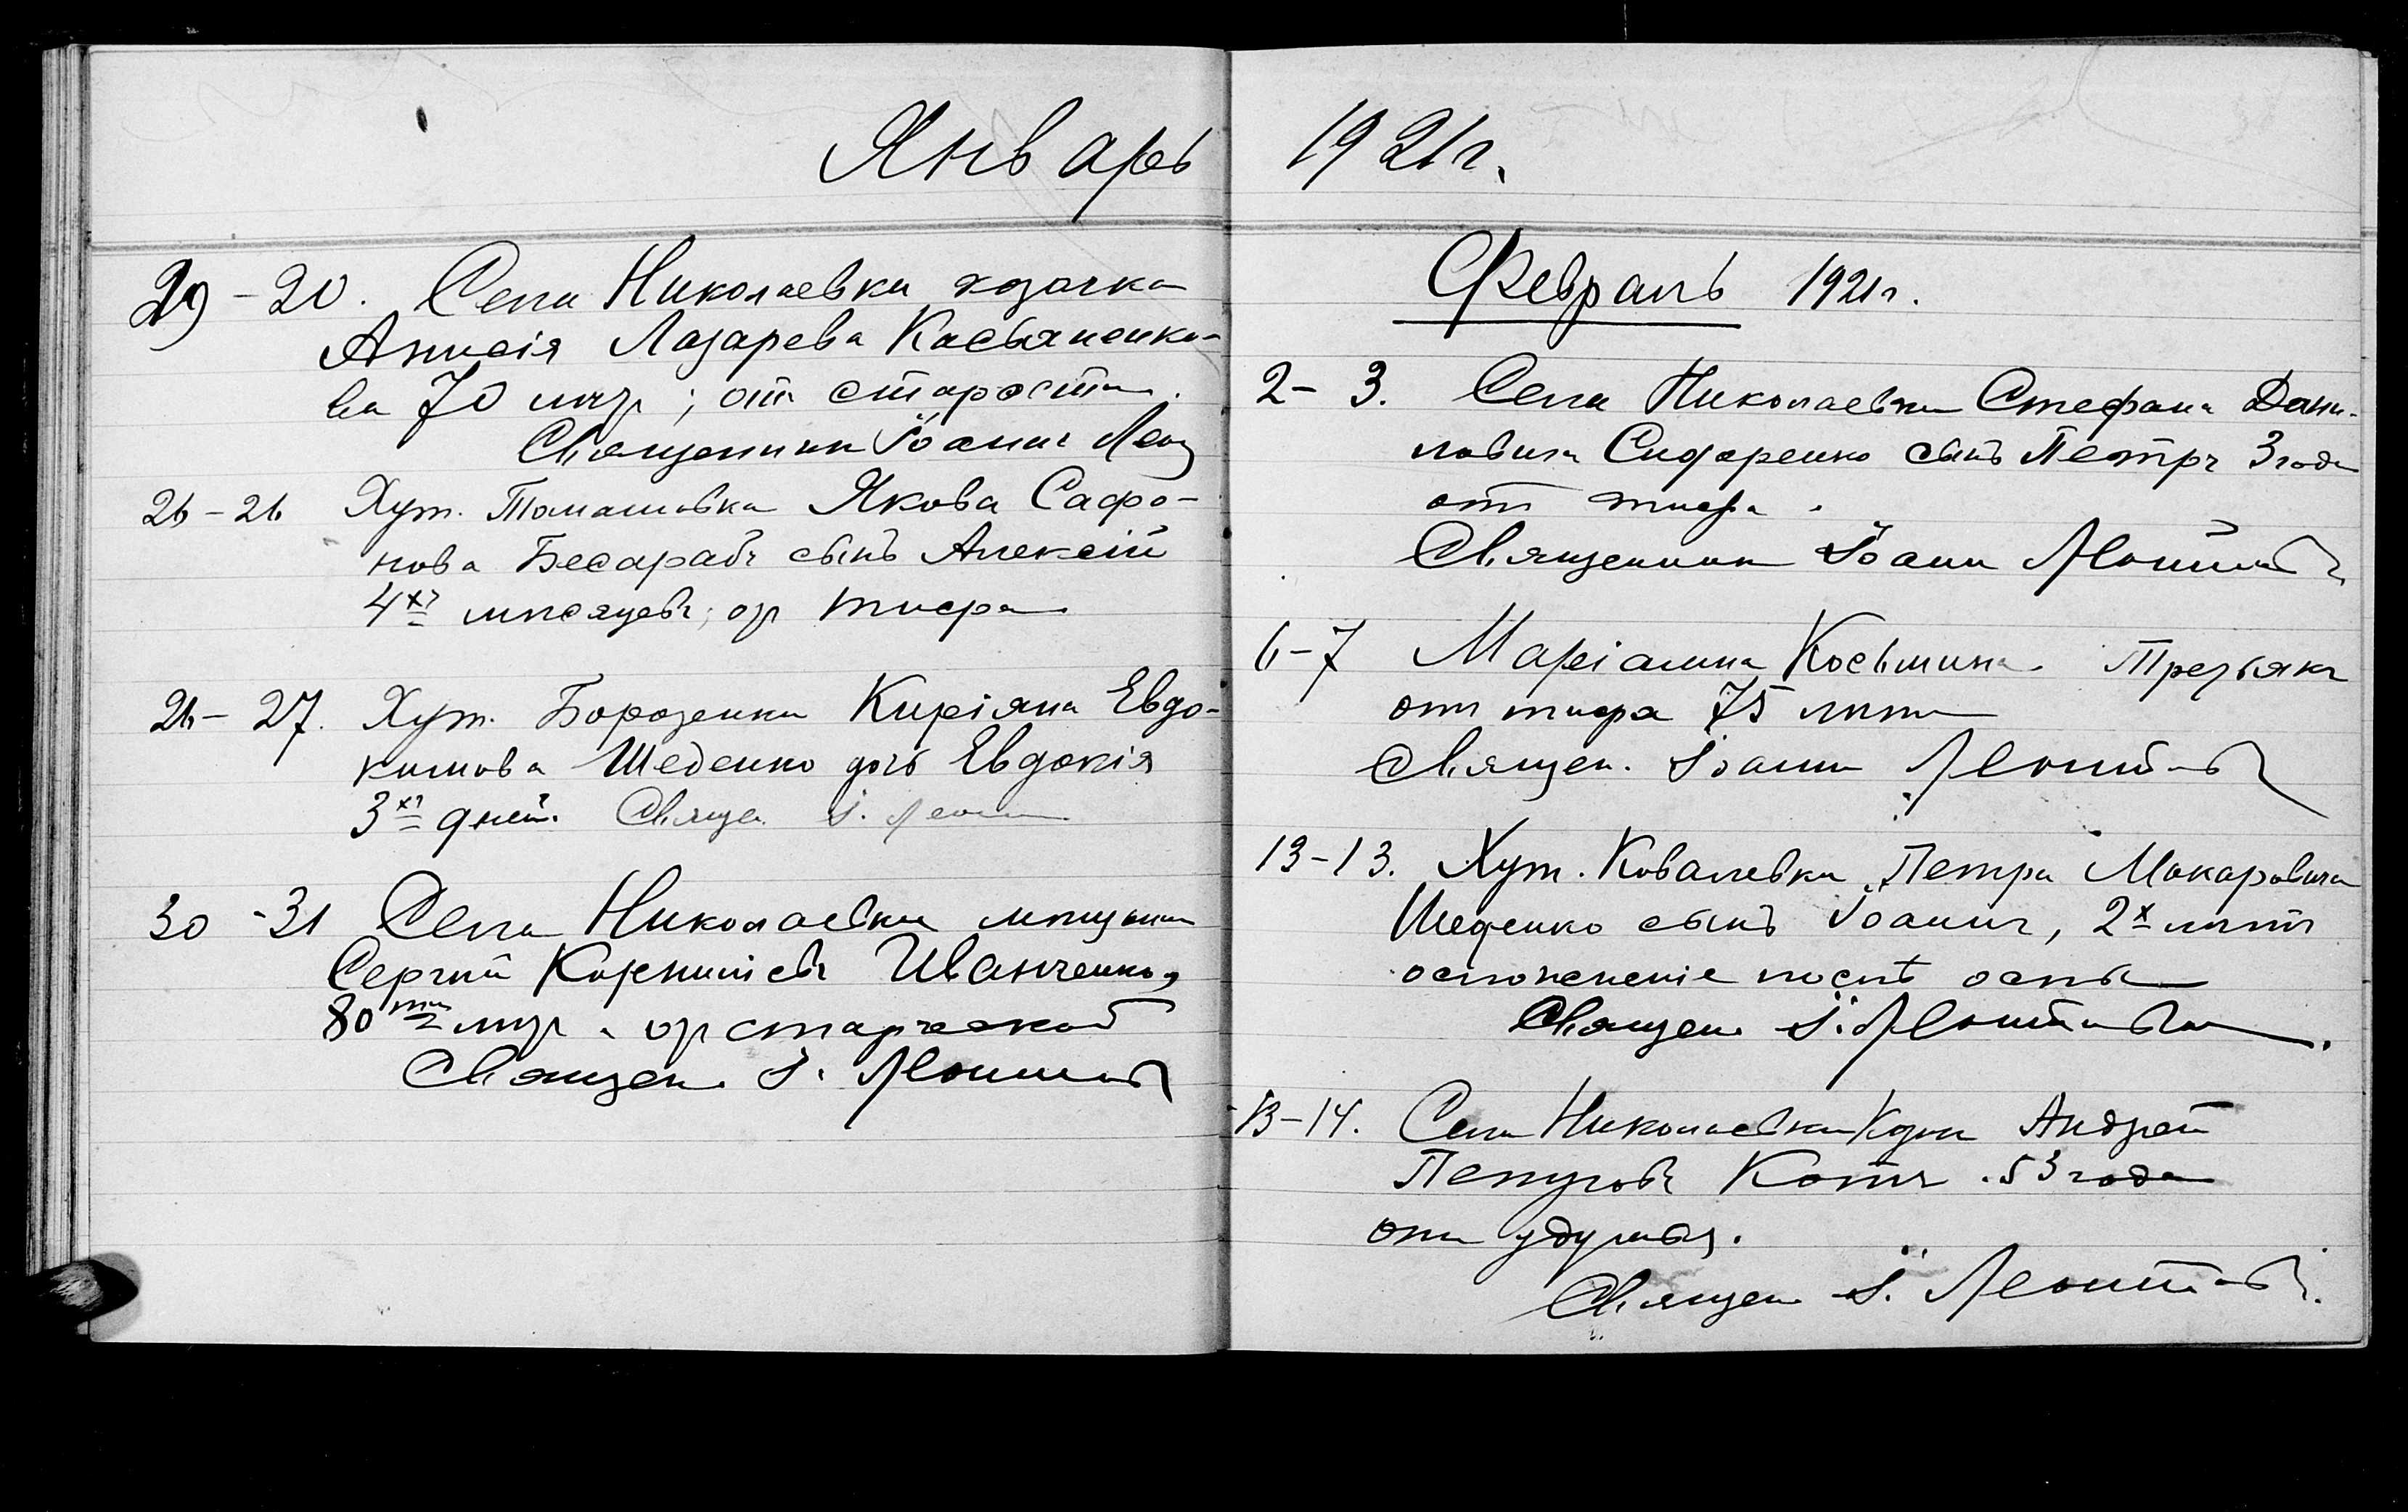 Январь 1921 г.
29 - 20. Села Николаевки козачка
Анисія Лазарева Касьяненко-
ва 70 лѣт; от старости.
Священникъ Іоаннъ Леон
26 - 26 Хут. Томашовка Якова Сафо-
нова Бесарабъ сынъ Алексій
4хъ мѣсяцевъ; от тифа
26 - 27. Хут. Борозенки Киріяна Евдо-
кимова Шеденко дочь Евдокія
3хъ дней. Священ. І. Леон
30 - 31 Села Николаевки мѣщанин
Сергій Корниліевъ Иванченко,
80ти лѣт. от старческой
Священ. І. Леонтовъ
Февраль 1921 г.
2 - 3. Села Николаевки Стефана Дани-
ловича Сидоренко сынъ Петръ 3 года
отъ тифа.
Священник Іоанн Леонтовъ
6 - 7 Маріанна Косьмина Третьякъ
отъ тифа 75 лѣтъ
Священ. Іоанн Леонтовъ
13 - 13. Хут. Ковалевки Петра Макаровича
Шеденко сынъ Іоаннъ, 2х лѣтъ
осложненіе послѣ оспы
Священ. І. Леонтовъ
13 - 14. Села Николаевки Андрей
Петровъ Котъ. 53 года
отъ удушья.
Священ І. Леонтовъ.